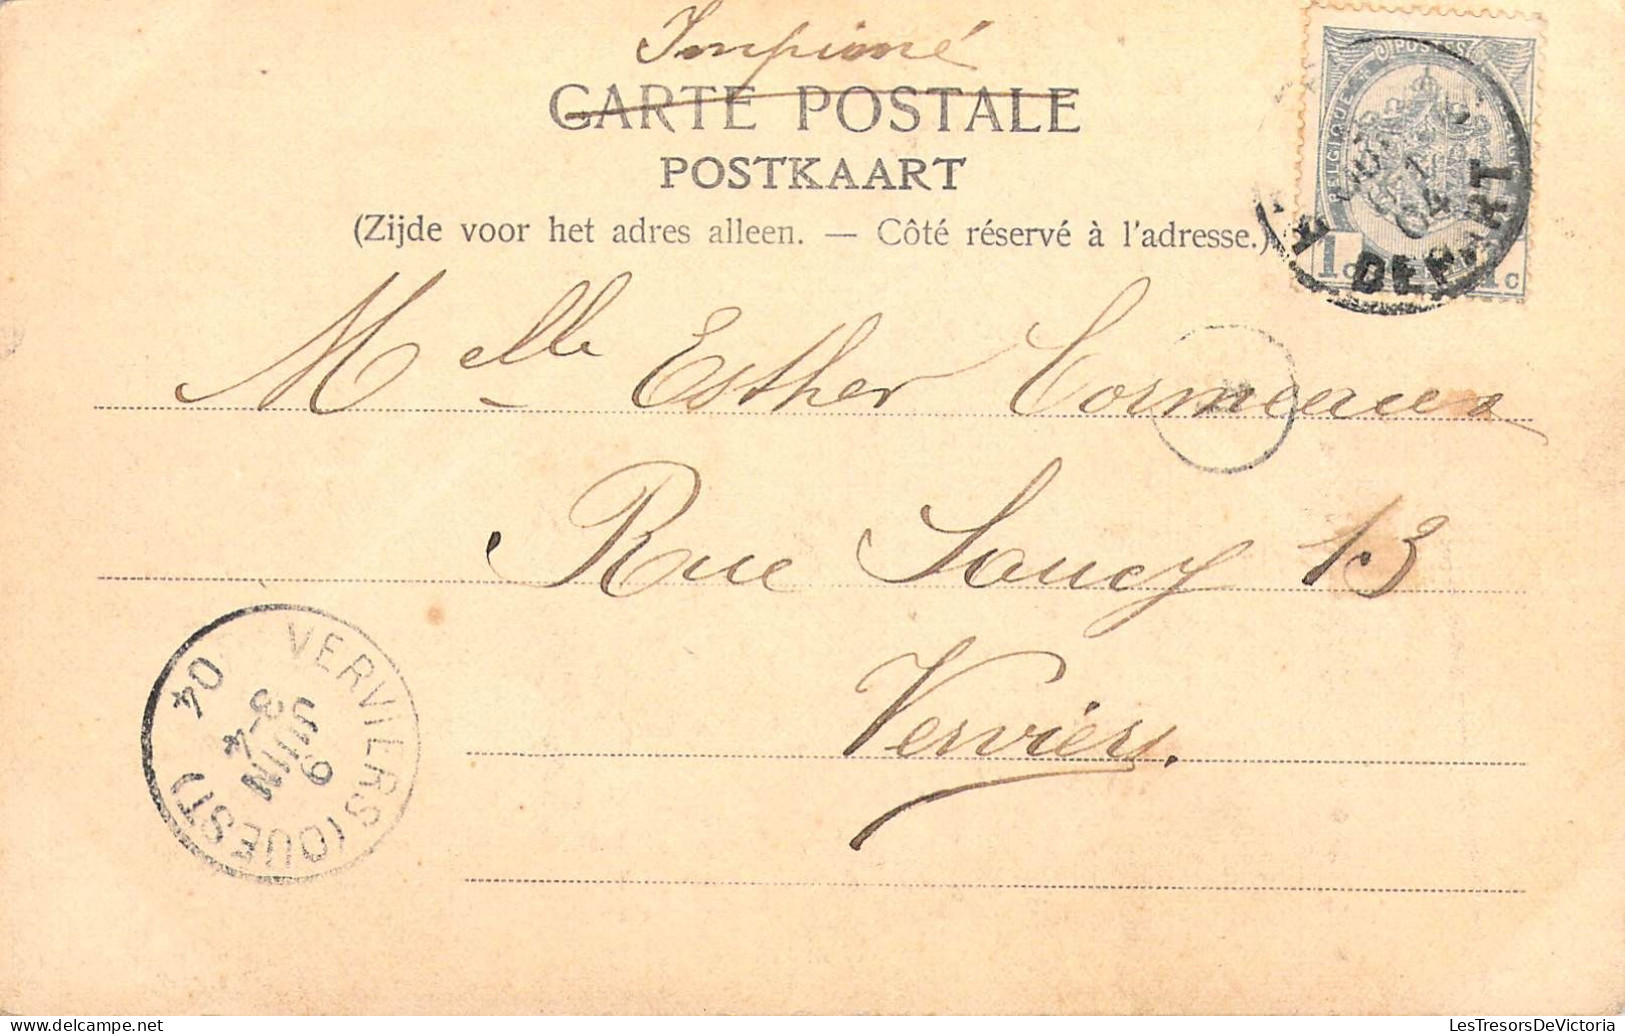 Imprimé
CARTE POSTALE
POSTKAART
(Zijde voor het adres alleen. — Côté réservé à l'adresse.)
POSTES
BELGIQUE
1c
1c
04
DEPART
Melle Esther Cormeaux
Rue Saucy 13
Verviers.
VERVIERS (OUEST)
9 JUIN
04
LesTresorsDeVictoria